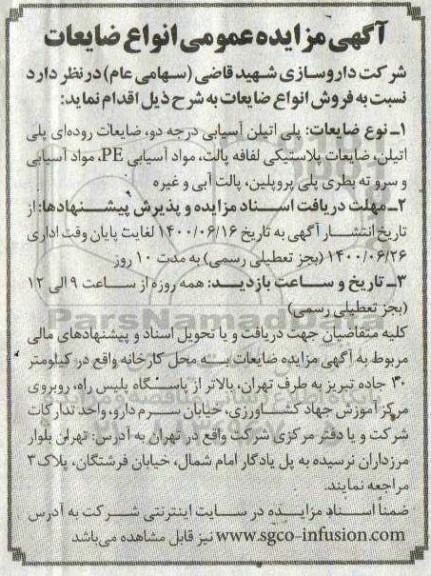 آگهی مزایده عمومی انواع ضایعات
شرکت داروسازی شهید قاضی (سهامی عام) در نظر دارد
نسبت به فروش انواع ضایعات به شرح ذیل اقدام نماید:
۱ـ نوع ضایعات: پلی اتیلن آسیابی درجه دو، ضایعات روده‌ای پلی
اتیلن، ضایعات پلاستیکی لفافه پالت، مواد آسیابی PE، مواد آسیابی
و سر و ته بطری پلی پروپلین، پالت آبی و غیره
۲ـ مهلت دریافت اسناد مزایده و پذیرش پیشنهادها: از
تاریخ انتشار آگهی به تاریخ ۱۴۰۰/۰۶/۱۶ لغایت پایان وقت اداری
۱۴۰۰/۰۶/۲۶ (بجز تعطیلی رسمی) به مدت ۱۰ روز
۳ـ تاریخ و ساعت بازدید: همه روزه از ساعت ۹ الی ۱۲
(بجز تعطیلی رسمی)
کلیه متقاضیان جهت دریافت و یا تحویل اسناد و پیشنهادهای مالی
مربوط به آگهی مزایده ضایعات به محل کارخانه واقع در کیلومتر
۳۰ جاده تبریز به طرف تهران، بالاتر از پاسگاه پلیس راه، روبروی
مرکز آموزش جهاد کشاورزی، خیابان سرم دارو، واحد تدارکات
شرکت و یا دفتر مرکزی شرکت واقع در تهران به آدرس: تهران بلوار
مرزداران نرسیده به پل یادگار امام شمال، خیابان فرشتگان، پلاک ۳
مراجعه نمایند.
ضمناً اسناد مزایده در سایت اینترنتی شرکت به آدرس
www.sgco-infusion.com نیز قابل مشاهده می‌باشد
ParsNamadData